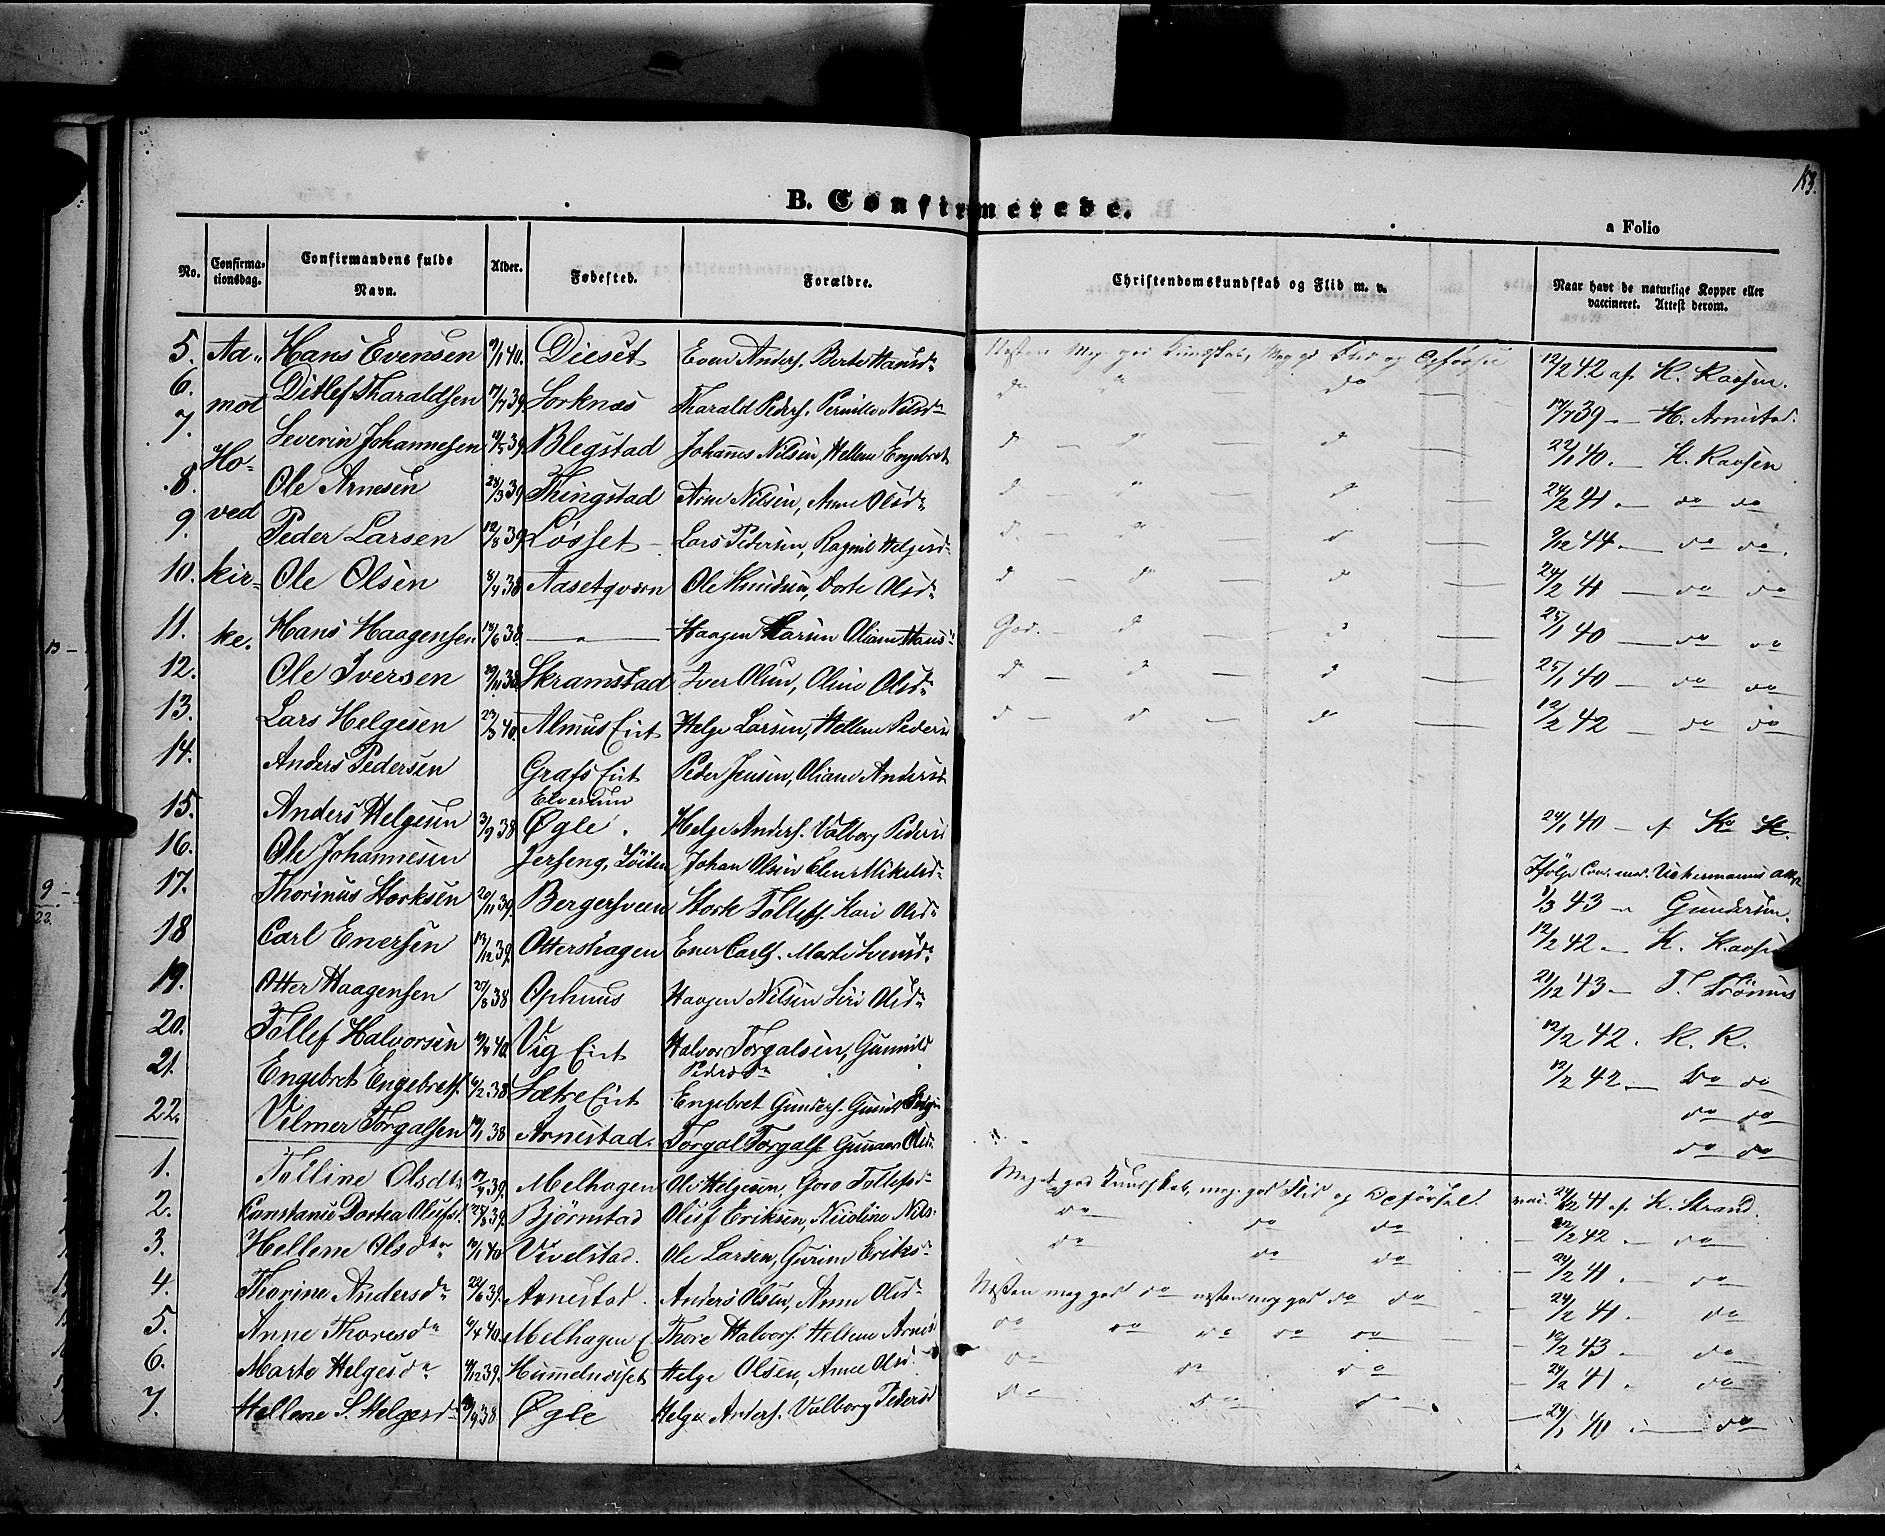 183.
B. Confirmerede.
a Folio
No. Confirmationsdag. Confirmandens fulde Navn. Alder. Fødested. Forældre. Christendomskundskab og Flid m. v. Naar havt de naturlige Kopper eller vaccineret. Attest derom.
5. Ad- Hans Evensen 9/1 40. Dieset Even Anders. Berte Hansd. Næsten Meg. god Kundskab, Meg. gd Flid og Opførsel 12/2 42 af K. Raosen.
6. mot Ditlef Tharaldsen 17/7 39. Sorknæs Tharald Peders. Pernille Nilsdr 17/7 39 — H. Arnestad.
7. Severin Johannesen 39. Blegstad Johans Nilsen, Hellene Engebret 22/1 40. — K. Raosen
8. Ho- Ole Arnesen 24/3 39 Thingstad Arne Nilsen, Anne Olsdr 24/2 41 — do do
9. ved Peder Larsen 12/8 39 Løsset Lars Pedersen, Ragnil Helgesd. 9/12 44 — do do.
10. kir- Ole Olsen 8/4 38 Aasetqværn Ole Knudsen, Dorte Olsdr 24/2 41 — do do
11. ke. Hans Haagensen 18/6 38. — " — Haagen Larsen Oliane Hansdr God. — d — d 25/1 40 — do do
12. Ole Iversen 38 Skramstad Iver Olsen, Oline Olsdr 25/1 40 — do do
13. Lars Helgesen 40. Almus Eiet Helge Larsen, Hellene Pedersd 12/2 42 — do do
14. Anders Pedersen Grafs Eiet Elverum Peder Jensen, Oliane Andersd
15. Anders Helgesen 3/9 38 Øgle. Helge Anders. Valborg Pedersd 24/1 40 — af
16. Ole Johannesen Jerseng, Løiten Johan Olsen Elen Mikelsdr Ifølge
17. Thorinus Storksen 20/11 39. Bergersveen Stork Tollefs. Kari Olsdr 1/3 43 — Gundersen.
18 Carl Enersen 13/12 39. Ottershagen Ener Carls. Marte Svensdr 12/2 42 — K. Raosen
19. Otter Haagensen 27/8 38 Ophuus Haagen Nilsen Siri Olsdr 21/12 43 — T. Strømus
20. Tollef Halvorsen 40. Vig Eiet Halvor Torgalsen, Gunnild Pedersdr 12/2 42. K. R.
21. Engebret Engebrets. 6/2 38. Sætre Eiet Engebret Gunders. Gunild 12/2 42. — Do do
22. Vilmer Torgalsen 38 Arnestad. Torgal Torgals Gunnor Olsdr do do
do do
1. Tolline Olsdr 39. Melhagen Ole Helgesen, Goro Tollefsdr Meget god Kundskab, meg. god Flid og Opførsel. vac. 24/2 41 af K. Strand.
2. Constance Dortea Olufsd. 39. Bjørnstad Oluf Eriksen, Nicoline Nils. do do do 12/2 42 — do
3. Hellene Olsdtr 40 Vivelstad. Ole Larsen, Gurine Eriksdr do do do 24/2 41 — do
4. Thorine Andersdr 22/6 39. Arnestad. Anders Olsen, Anne Olsdr Næsten meg god do næsten meg god do do 24/2 41. do
5. Anne Thoresdr 6/4 40. Melhagen E Thore Halvors. Hellene Arnesd do do do do do 12/2 43 — do
6. Marte Helgesdr 4/12 39. Hummelnæset Helge Olsen, Anne Olsd. do do do 24/2 41. do
7. Hellene S. Helgesdr 38. Øgle Helge Anders. Valborg Pedersd do do do 24/1 40 — do